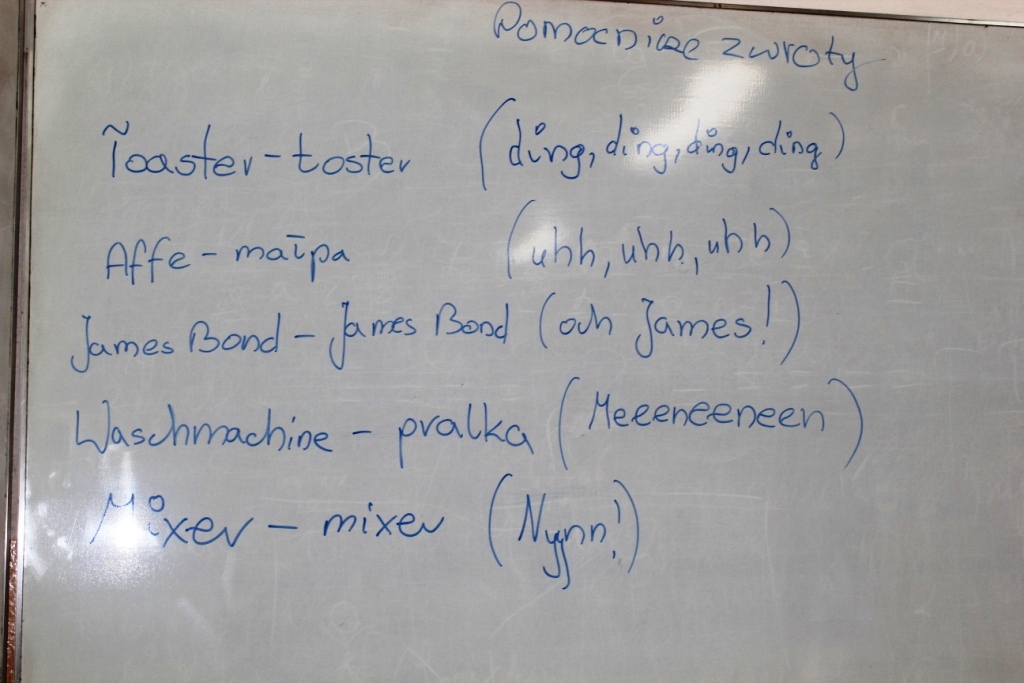 Pomocnicze zwroty
Toaster - toster (ding, ding, ding, ding)
Affe - małpa (uhh, uhh, uhh)
James Bond - James Bond (och James!)
Waschmachine - pralka (Meeeneeneen)
Mixer - mixer (Nyynn!)